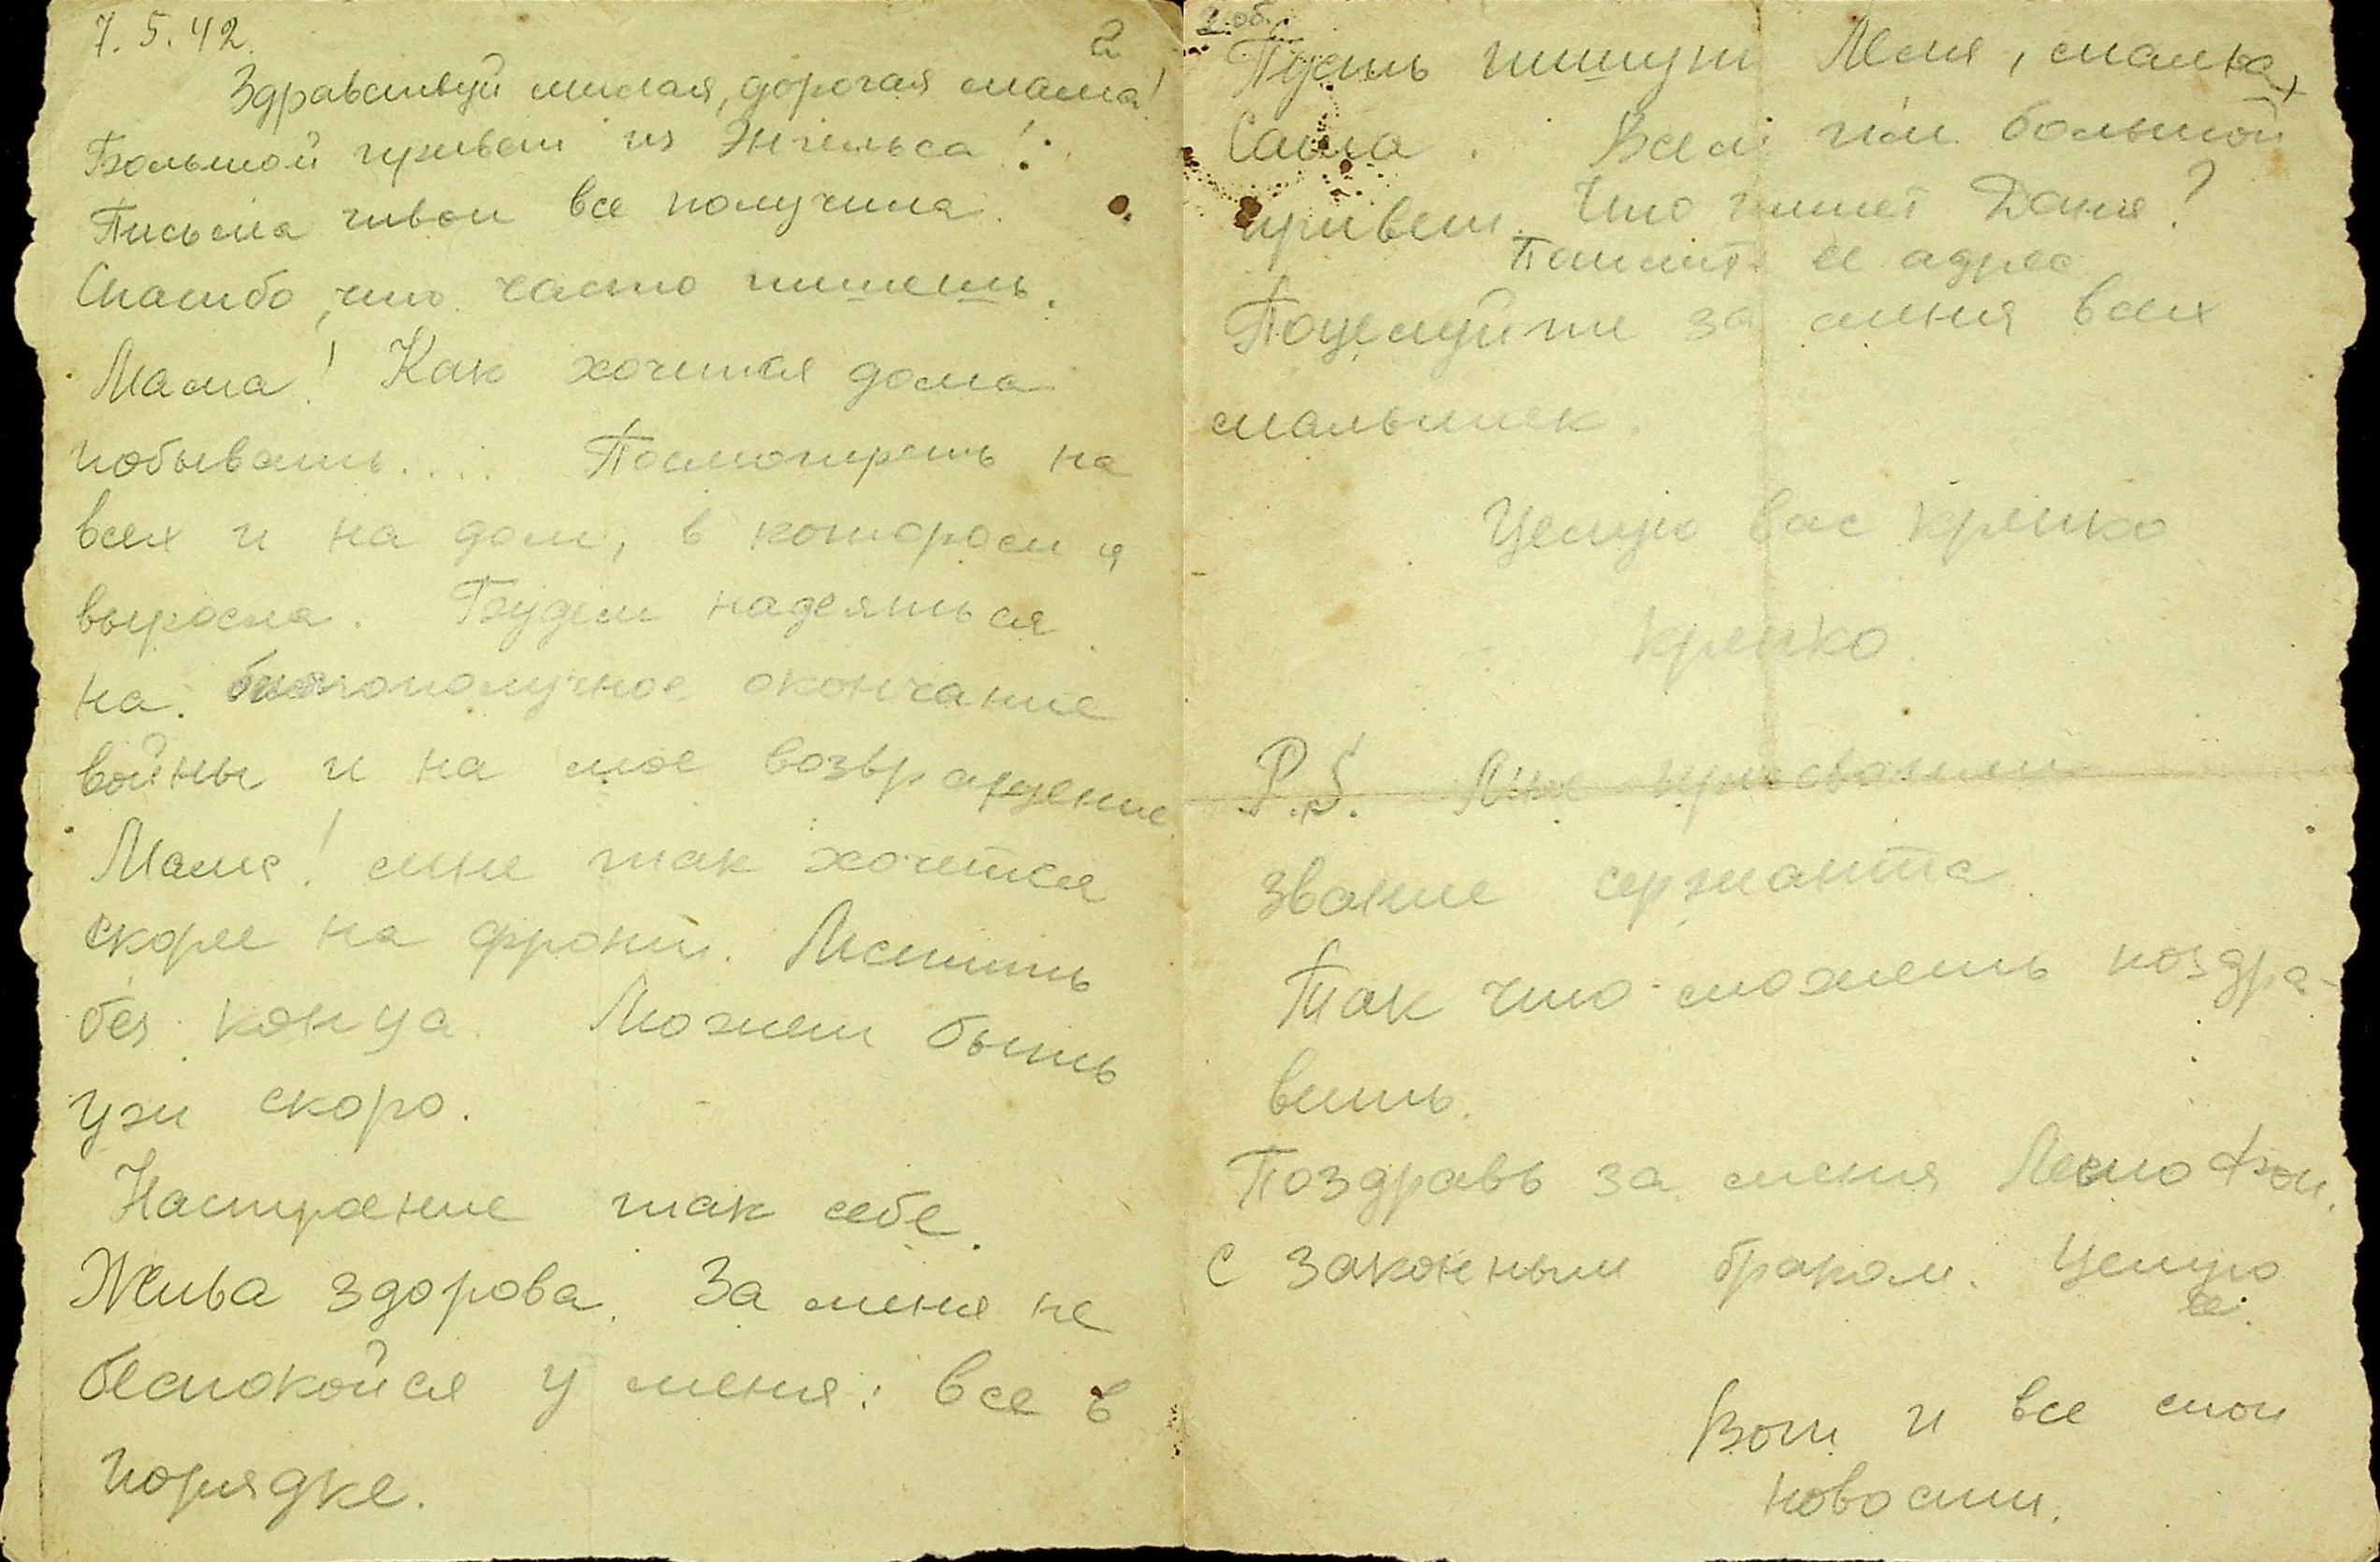 7.5.42.
2
Здравствуй милая, дорогая мама!
Большой привет из Энгельса!
Письма твои все получила.
Спасибо, что часто пишешь.
Мама! Как хочется дома
побывать.... Посмотреть на
всех и на дом, в котором я
выросла. Будем надеяться
на благополучное окончание
войны и на мое возвращение
Мама! мне так хочется
скорее на фронт. Мстить
без конца. Может быть
уже скоро.
Настроение так себе.
Жива здорова. За меня не
беспокойся у меня: все в
порядке.
2 об.
Пусть пишут Леля,
Саша. Всем им большой
привет. Что пишет Даня?
Пошлите ее адрес
Поцелуйте за меня всех
мальшек.
Целую вас крепко
крепко
P.S. Мне присвоили
звание сержанта.
Так что можешь поздра-
вить.
Поздравь за меня
с законным браком. Целую
ее.
Вот и все мои
новости.